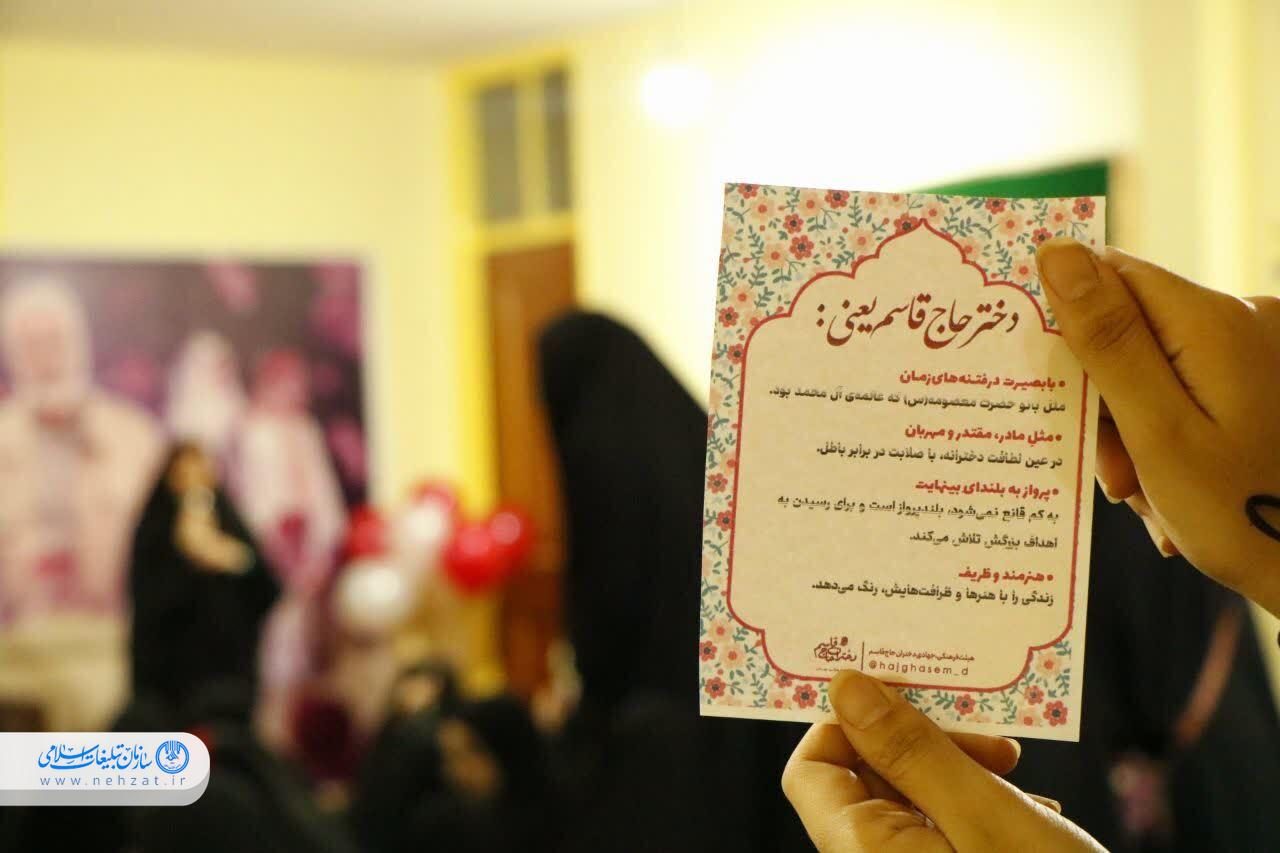 دختر حاج قاسم یعنی:
• بابصیرت در فتنه‌های زمان
مثل بانو حضرت معصومه(س) که عالمه‌ی آل محمد بود.
• مثل مادر، مقتدر و مهربان
در عین لطافت دخترانه، با صلابت در برابر باطل.
• پرواز به بلندای بینهایت
به کم قانع نمی‌شود، بلندپرواز است و برای رسیدن به
اهداف بزرگش تلاش می‌کند.
• هنرمند و ظریف
زندگی را با هنرها و ظرافت‌هایش، رنگ می‌دهد.
هیئت فرهنگی، جهادی دختران حاج قاسم
@hajghasem_d
دختران حاج قاسم
سازمان تبلیغات اسلامی
www.nehzat.ir